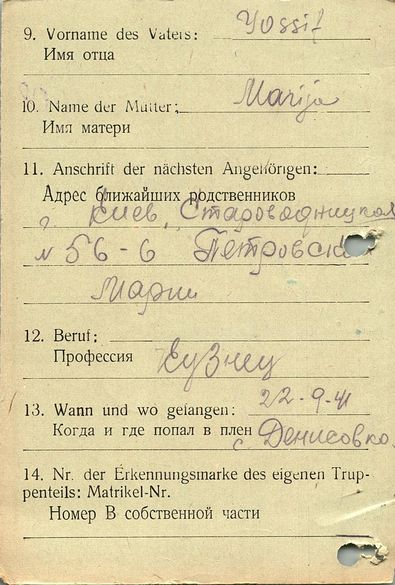 9. Vorname des Vaters: Yossif
Имя отца
10. Name der Mutter: Marija
Имя матери
11. Anschrift der nächsten Angehörigen:
Адрес ближайших родственников
г. Киев, Староводницкая
№ 56-6 Петровская
Мария
12. Beruf:
Профессия Кузнец
13. Wann und wo gefangen: 22-9-41
Когда и где попал в плен с. Денисовка
14. Nr. der Erkennungsmarke des eigenen Trup-
penteils: Matrikel-Nr.
Номер В собственной части